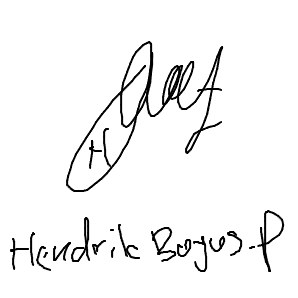 Hendrik Bagus.P